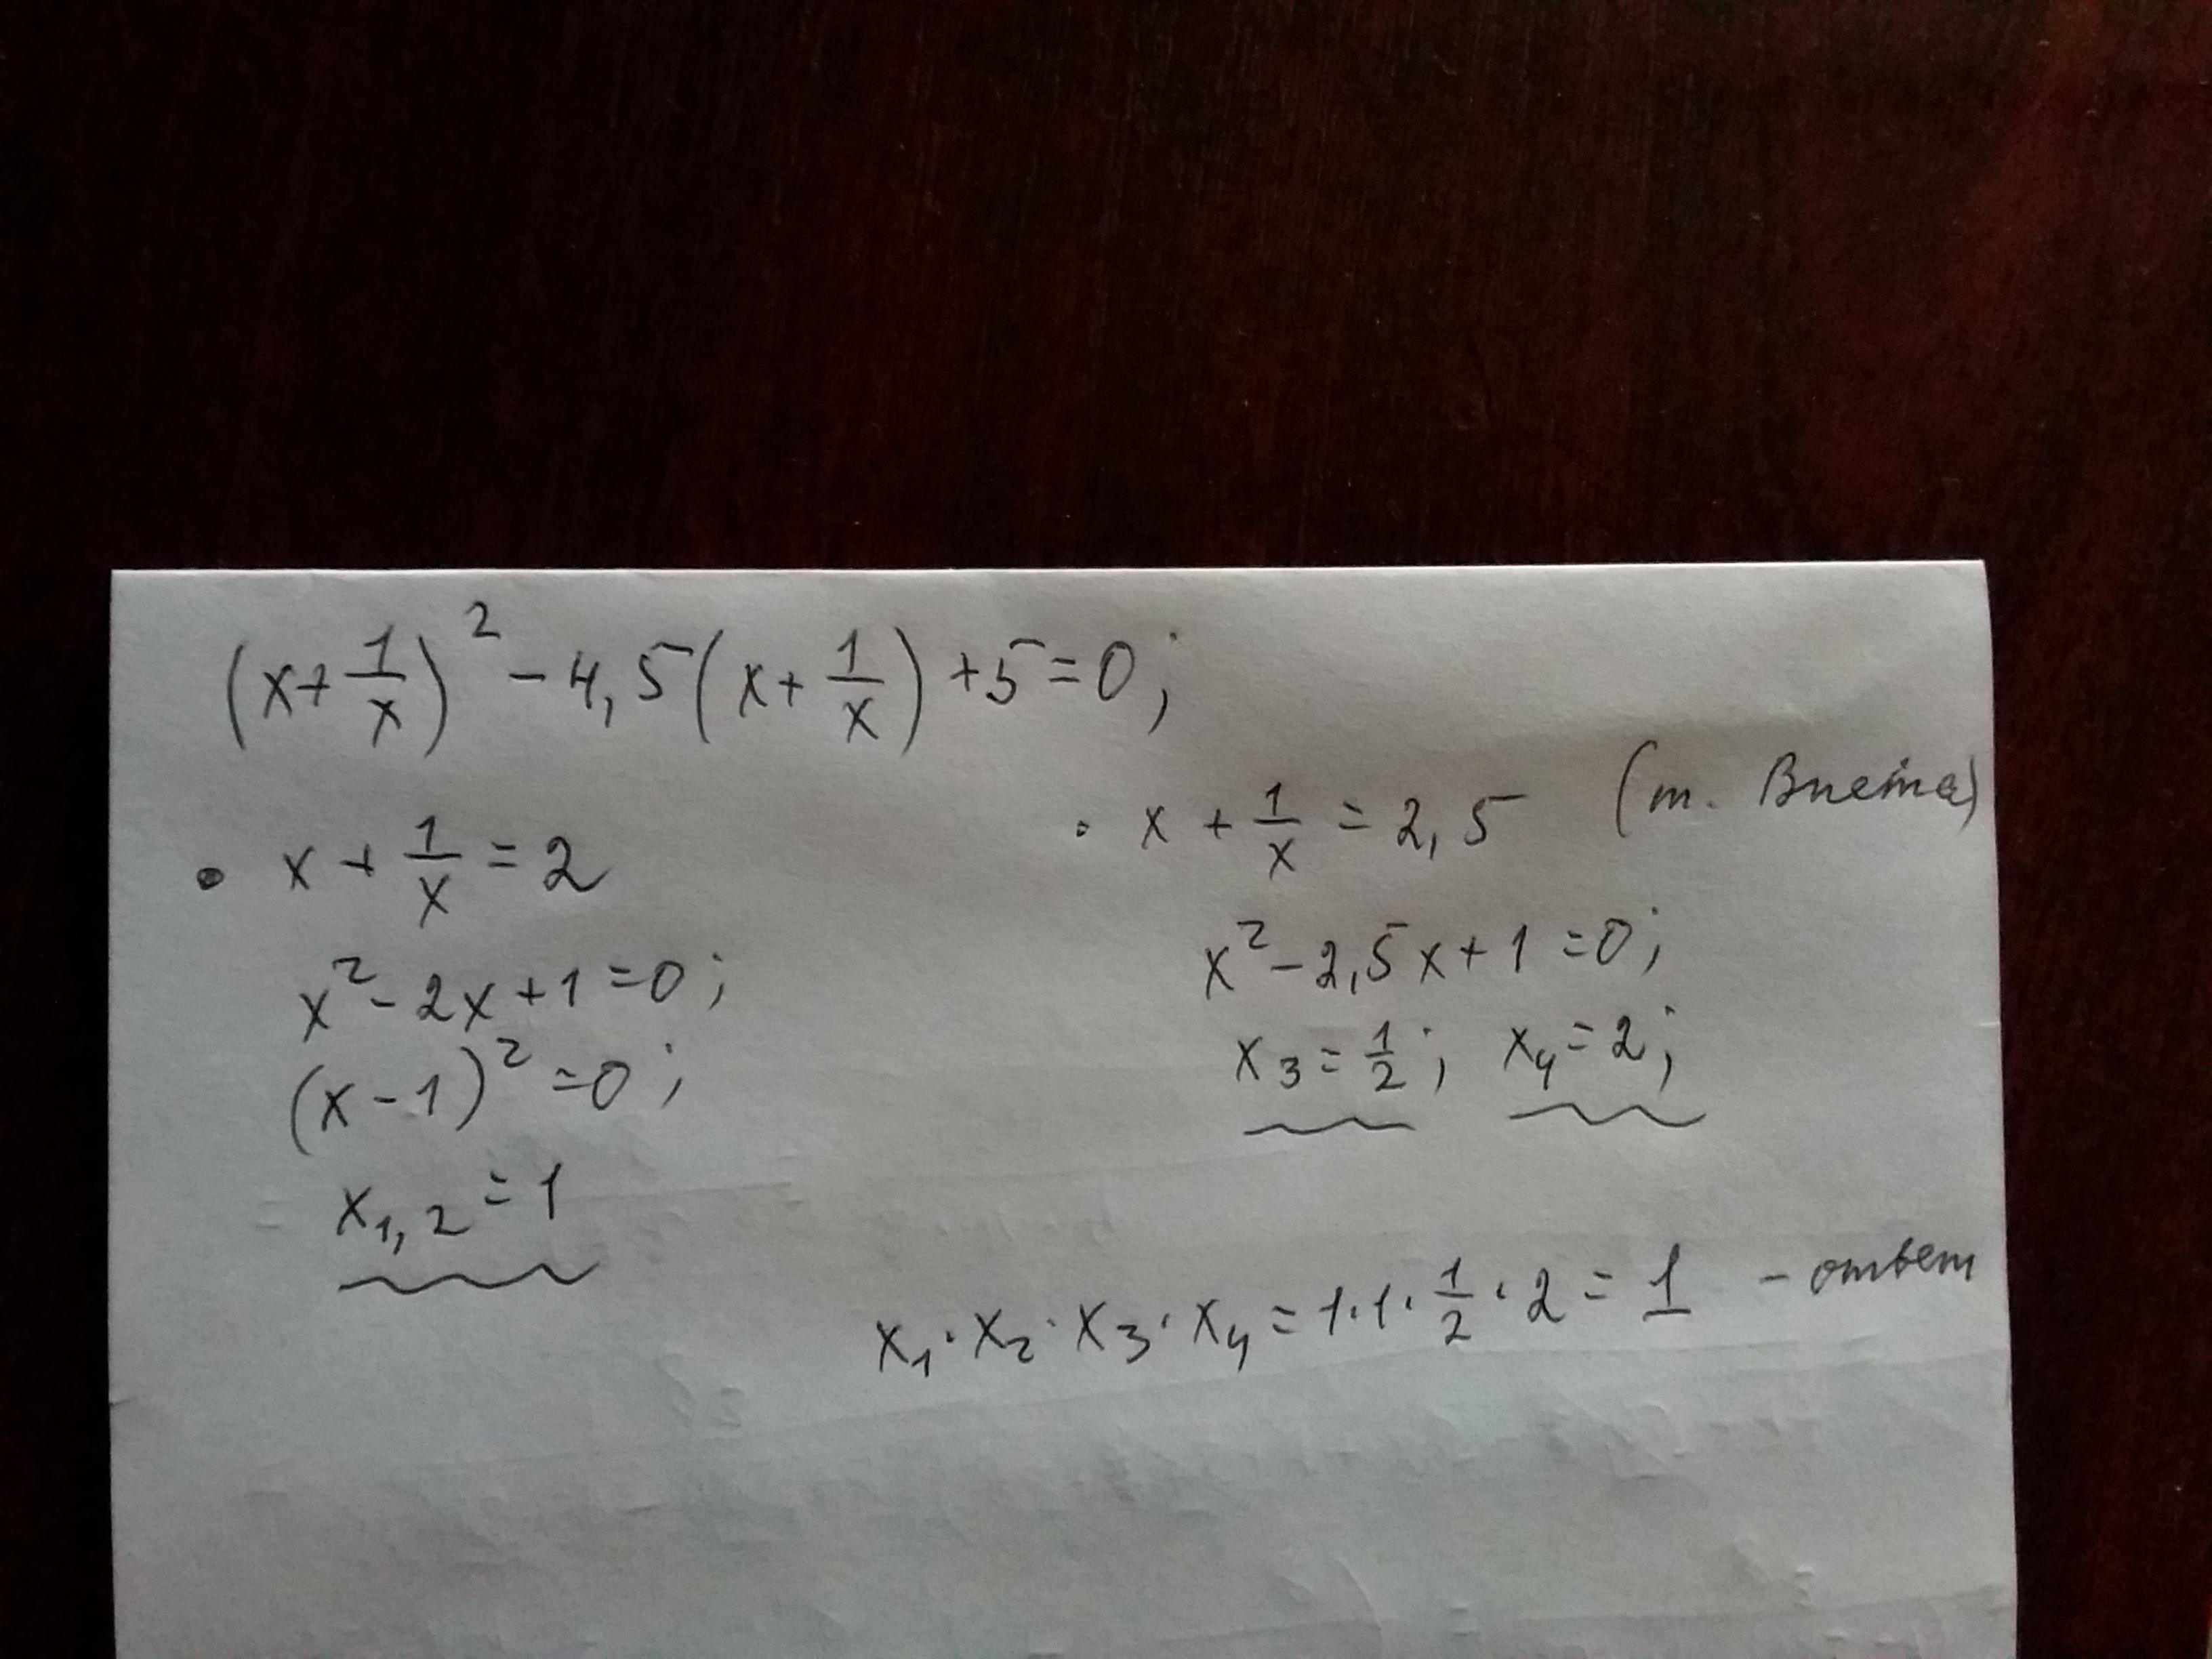 (x+1/x)² - 4,5(x+1/x) + 5 = 0;
• x + 1/x = 2
x² - 2x + 1 = 0;
(x - 1)² = 0;
x₁,₂ = 1
• x + 1/x = 2,5 (т. Виета)
x² - 2,5x + 1 = 0;
x₃ = 1/2; x₄ = 2;
x₁·x₂·x₃·x₄ = 1·1·1/2·2 = 1 - ответ